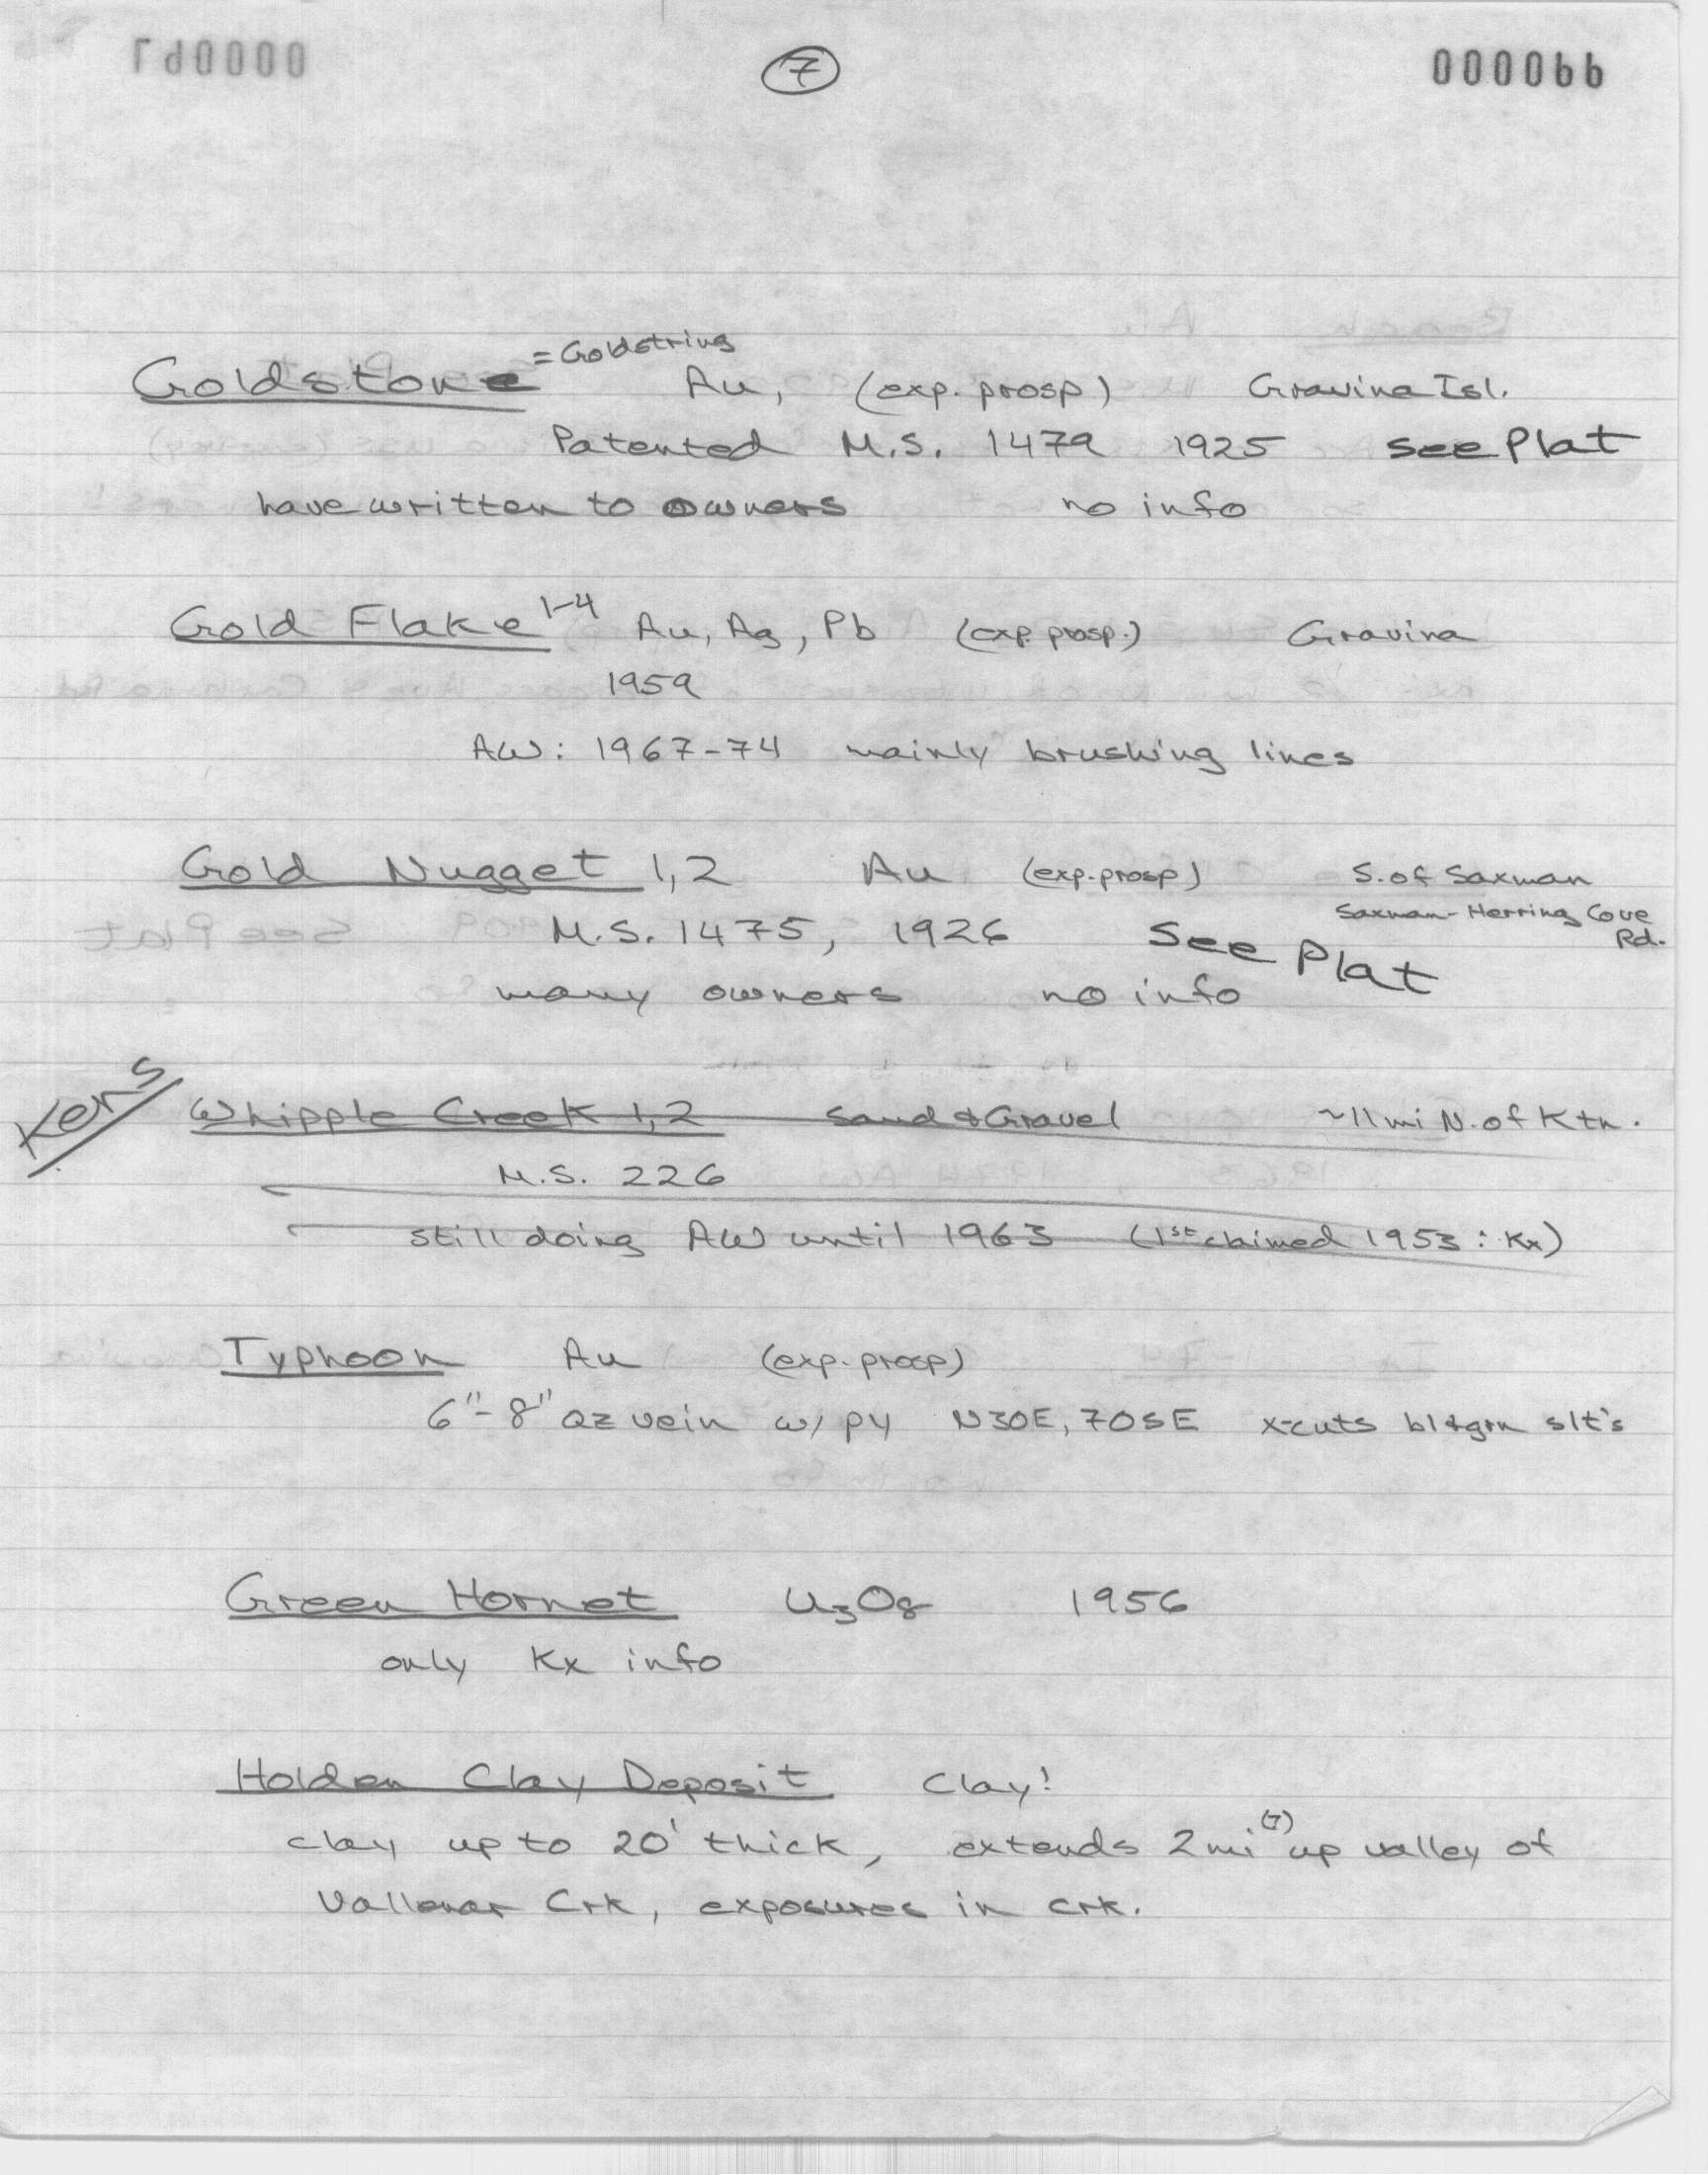 7
000066
= Goldstring
Goldstone Au, (exp. prosp) Gravina Isl.
Patented M.S. 1479 1925 see Plat
have written to owners no info
Gold Flake 1-4 Au, Ag, Pb (exp. prosp.) Gravina
1959
AW: 1967-74 mainly brushing lines
Gold Nugget 1,2 Au (exp. prosp) S. of Saxman
Saxman-Herring Cove Rd.
M.S. 1475, 1926 See Plat
many owners no info
Kens
Whipple Creek 1,2 Sand & Gravel ~11 mi N. of Ktn.
M.S. 226
still doing AW until 1963 (1st claimed 1953 : Kx)
Typhoon Au (exp. prosp)
6"-8" qz vein w/ py N30E, 70SE x-cuts bl & grn slt's
Green Hornet U3O8 1956
only Kx info
Holden Clay Deposit Clay!
clay up to 20' thick, extends 2mi (?) up valley of
Vallenar Crk, exposures in crk.